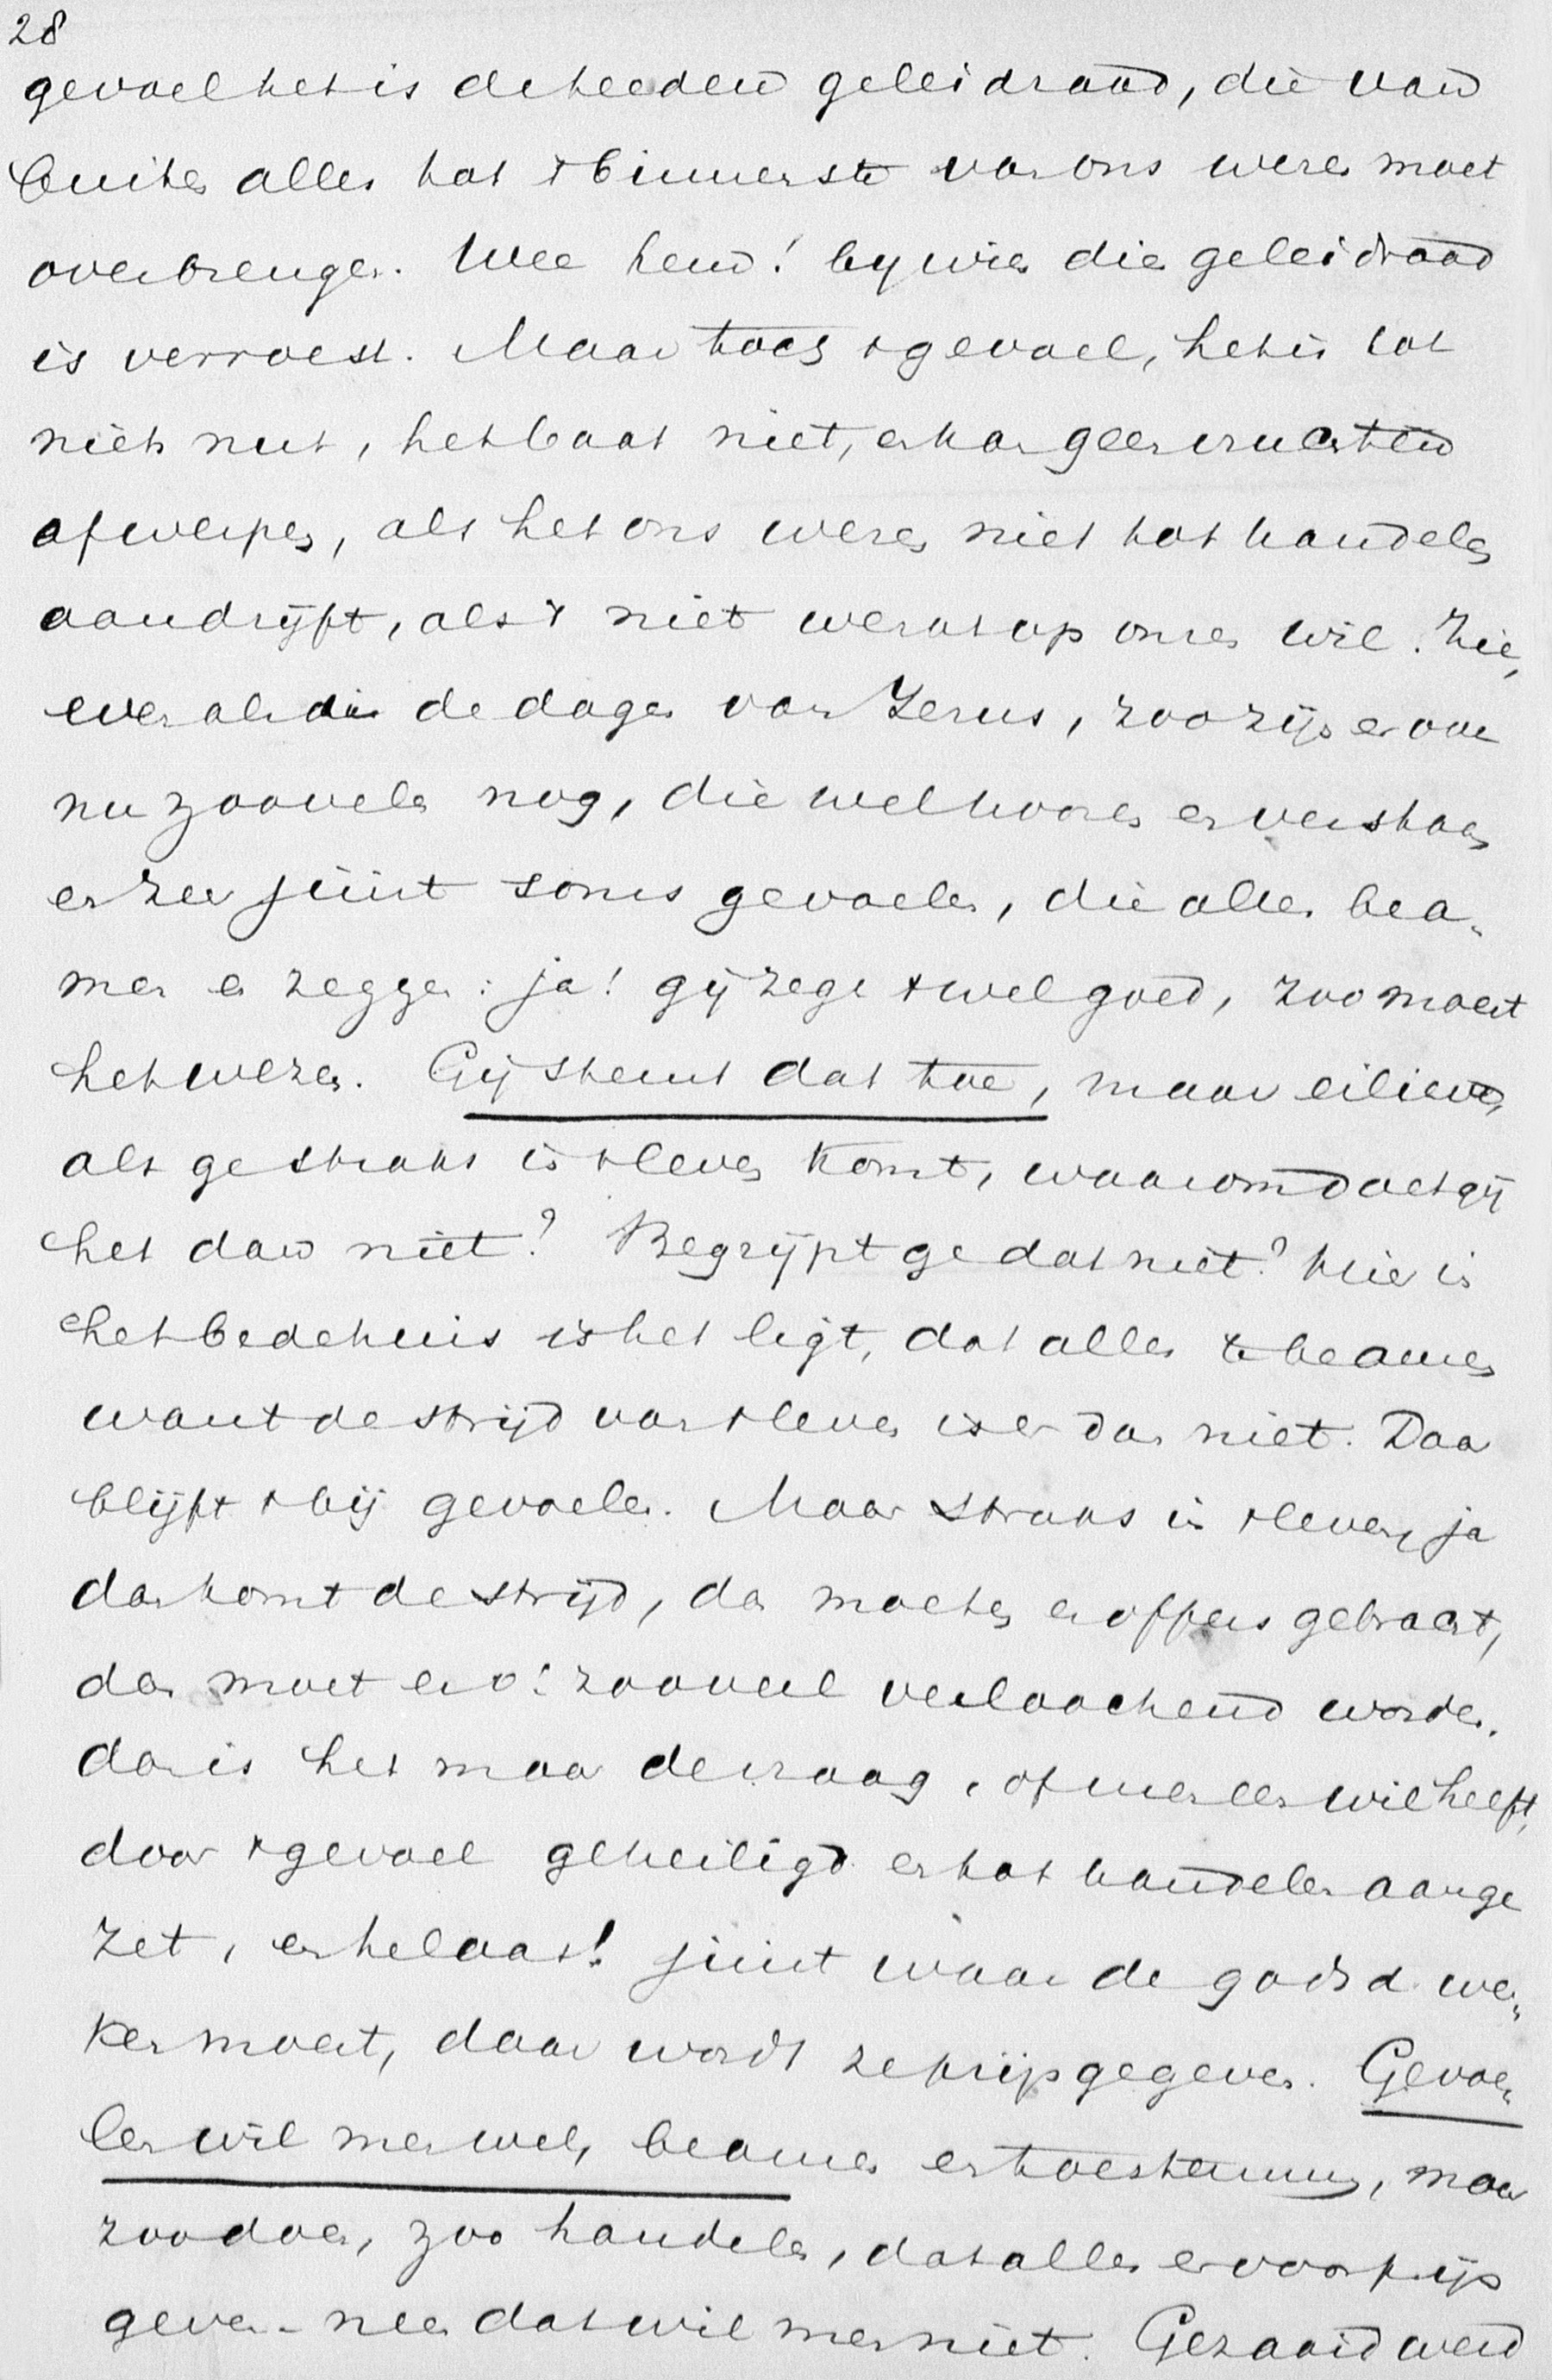 28
gevoel het is de teeden geleidraad, die van
buiten alles tot 't binnenste van ons wezen moet
overbrengen. Wee hem! by wien die geleidraad
is verroest. Maar toch 't gevoel, het is tot
niets nut, het baat niet, er kan geen vruchten
afwerpen, als het ons wezen niet tot handelen
aandrijft, als 't niet werkt op onzen wil. Zie,
even als in de dagen van Jezus, zoo zijn er ook
nu zoovelen nog, die wel hooren en verstaan
en zeer juist soms gevoelen, die alles bea„
men en zeggen: ja! gij zegt 't wel goed, zoo moest
het wezen. Gij stemt dat toe, maar eilieve,
als ge straks in 't leven komt, waarom doet gij
het dan niet? Begrijpt ge dat niet? Hier in
het bedehuis is het ligt, dat alles te beamen
want de strijd van 't leven is er dan niet. Daar
blijft 't bij gevoelen. Maar straks in 't leven, ja
dan komt de strijd, dan moeten er offers gebracht,
dan moet er o! zooveel verloochend worden.
dan is het maar de vraag, of men een wil heeft,
door 't gevoel geheiligd en tot handelen aange
zet, en helaas! juist waar de godsd. wer„
ken moest, daar wordt ze prijsgegeven. Gevoe„
len wil men wel, beamen en toestemmen, maar
zoo doen, zoo handelen, dat alles er voor prijs
geven - neen dat wil men niet. Gezaaid werd